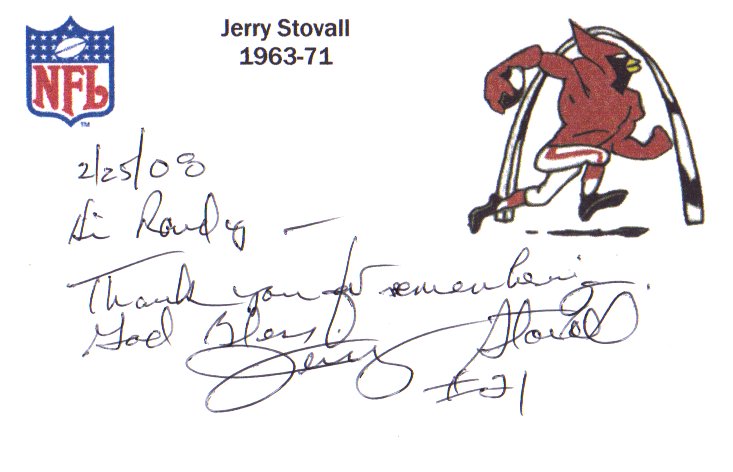 NFL
TM
Jerry Stovall
1963-71
2/25/08
Hi Randy —
Thank you for remembering.
God Bless!
Jerry Stovall
#21